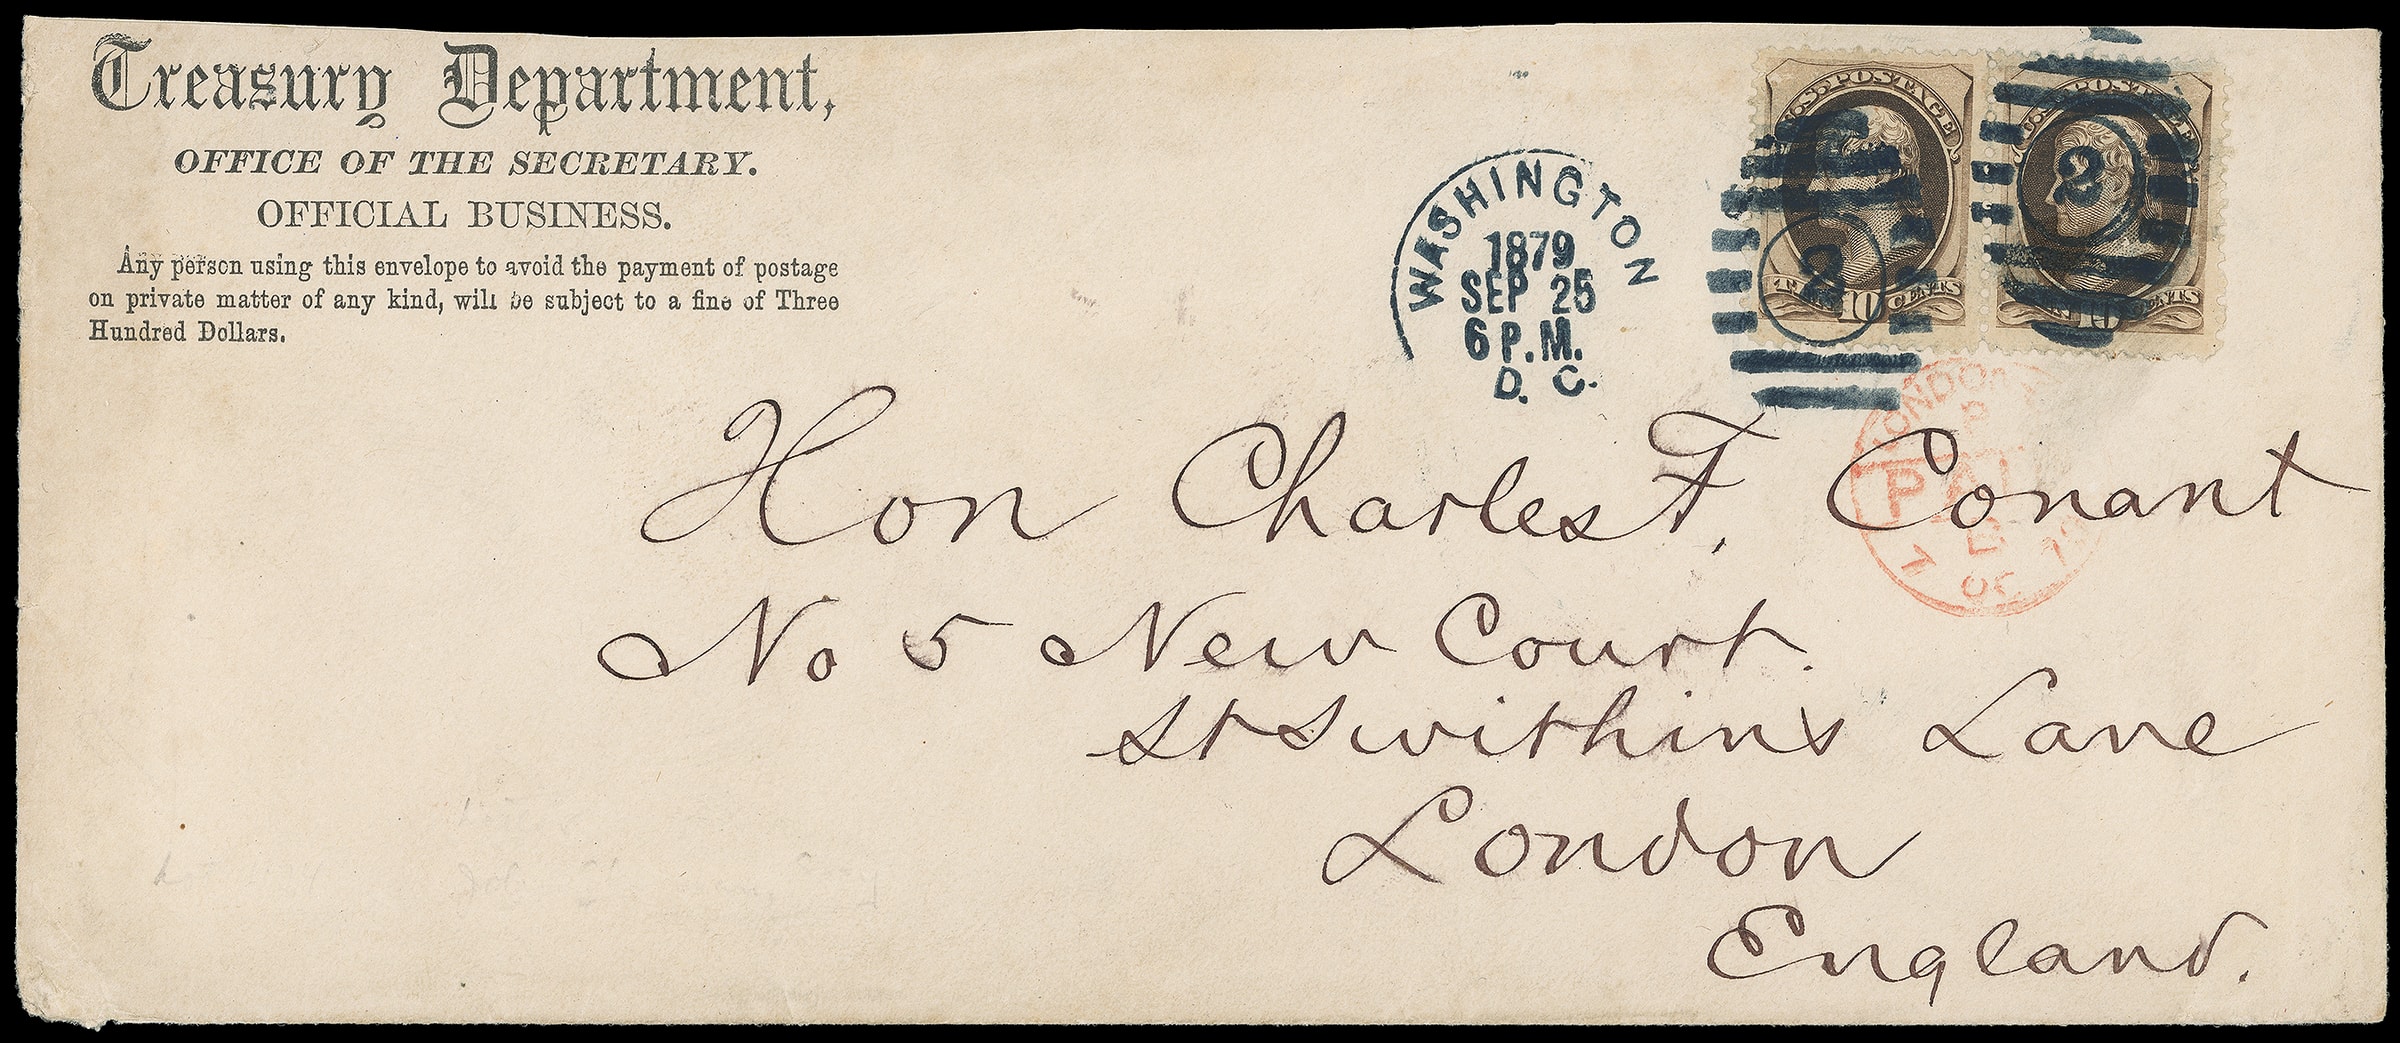 Treasury Department,
OFFICE OF THE SECRETARY.
OFFICIAL BUSINESS.
Any person using this envelope to avoid the payment of postage
on private matter of any kind, will be subject to a fine of Three
Hundred Dollars.
WASHINGTON
1879
SEP 25
6 P.M.
D. C.
U.S. POSTAGE
TEN 10 CENTS
2
POSTAGE
10 CENTS
2
LONDON
PAI
7 OC 79
Hon Charles F. Conant
No 5 New Court.
St Swithins Lane
London
England.